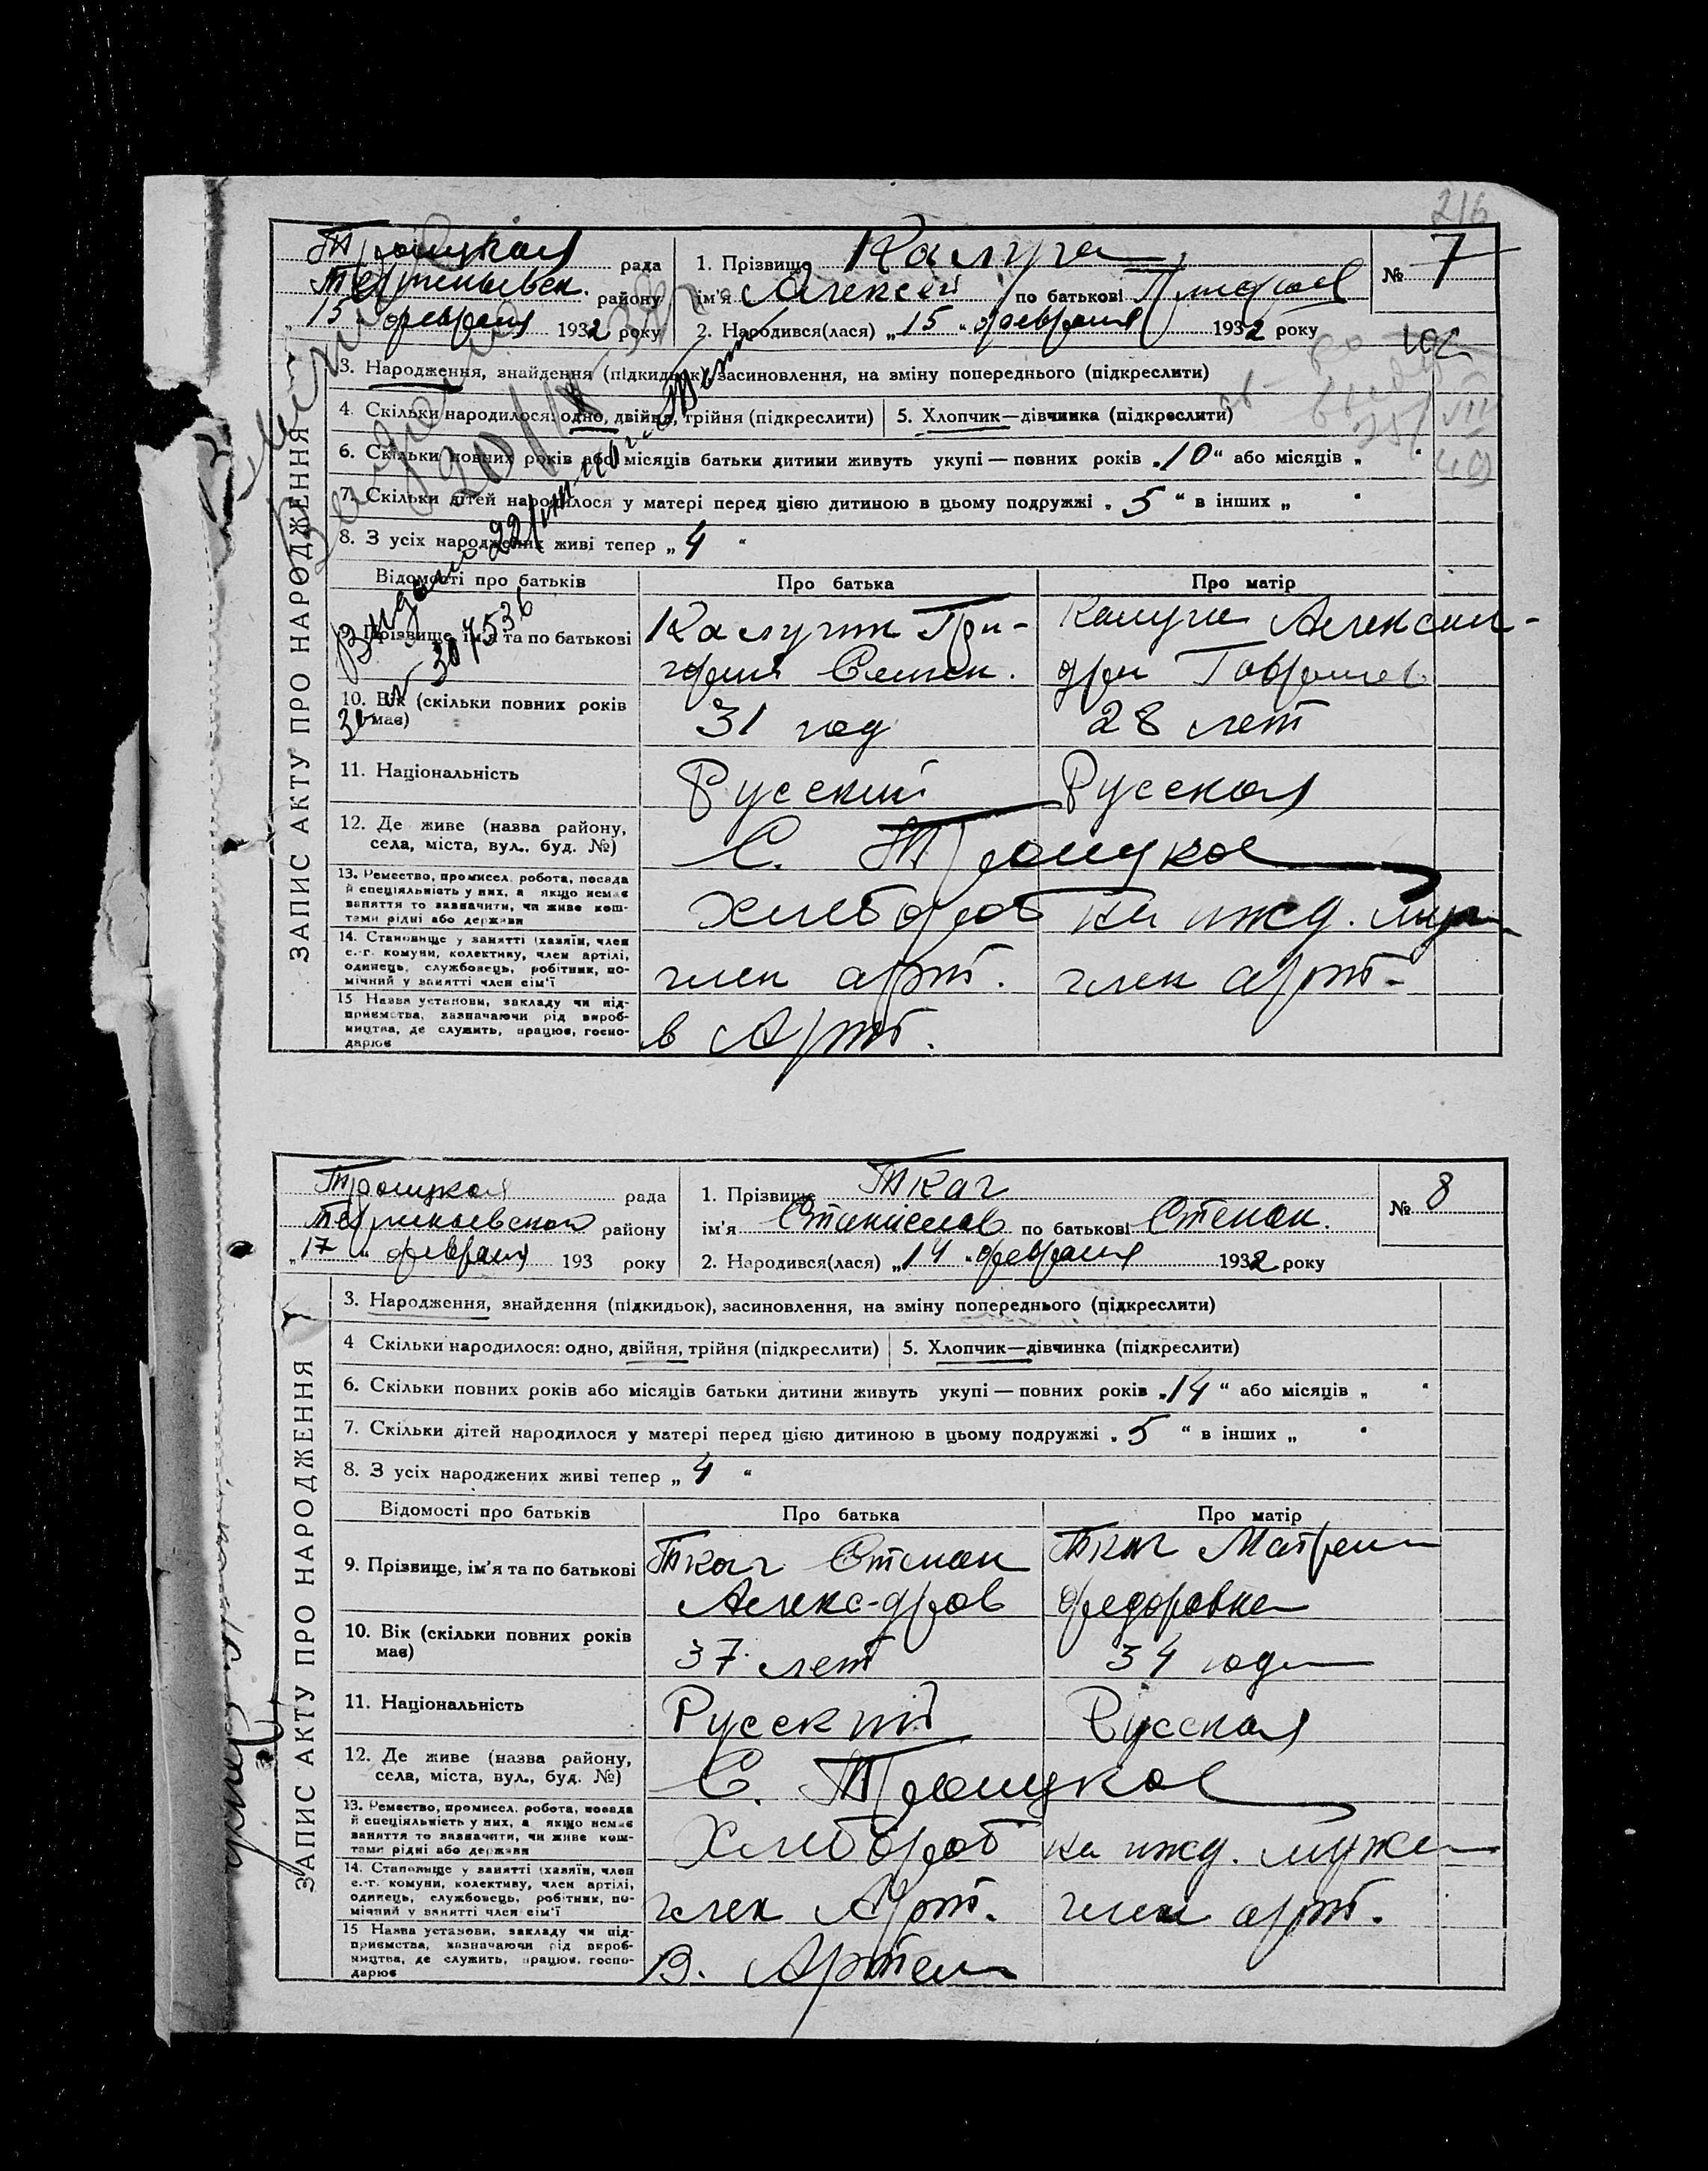 216
Троицкая рада
району
"15" февраля 1932 року
1. Прізвище Калуга
ім'я Алексей по батькові
2. Народився(лася) "15" февраля 1932 року
№ 7
3. Народження, знайдення (підкидьок), засиновлення, на зміну попереднього (підкреслити)
4. Скільки народилося: одно, двійня, трійня (підкреслити) 5. Хлопчик—дівчинка (підкреслити)
6. Скільки повних років або місяців батьки дитини живуть укупі — повних років "10" або місяців " "
7. Скільки дітей народилося у матері перед цією дитиною в цьому подружжі "5" в інших " "
8. З усіх народжених живі тепер "4"
ЗАПИС АКТУ ПРО НАРОДЖЕННЯ
Видано
Відомості про батьків Про батька Про матір
9. Прізвище, ім'я та по батькові
Калугин Гри-
горий Семен.
Калуга Алексан-
дра Гаврилов
10. Вік (скільки повних років має) 31 год 28 лет
11. Національність Русский Русская
12. Де живе (назва району, села, міста, вул., буд. №) С. Троицкое
13. Ремество, промисел, робота, посада й спеціяльність у них, а якщо немає заняття то зазначити, чи живе коштами рідні або держави
Хлебороб на ижд. мужа
14. Становище у занятті (хазяїн, член с.-г. комуни, колективу, член артілі, одинець, службовець, робітник, помічний у занятті член сім'ї
член арт. член арт.
15 Назва установи, закладу чи підприємства, зазначаючи рід виробництва, де служить, працює, господарює
в Арт.
Троицкая рада
району
"17" февраля 193 року
1. Прізвище Ткач
ім'я Станислав по батькові Степан.
2. Народився(лася) "14" февраля 1932 року
№ 8
3. Народження, знайдення (підкидьок), засиновлення, на зміну попереднього (підкреслити)
4 Скільки народилося: одно, двійня, трійня (підкреслити) 5. Хлопчик—дівчинка (підкреслити)
6. Скільки повних років або місяців батьки дитини живуть укупі — повних років "14" або місяців " "
7. Скільки дітей народилося у матері перед цією дитиною в цьому подружжі "5" в інших " "
8. З усіх народжених живі тепер "4"
ЗАПИС АКТУ ПРО НАРОДЖЕННЯ
Відомості про батьків Про батька Про матір
9. Прізвище, ім'я та по батькові
Ткач Степан
Алекс-дров
Ткач Матрена
Федоровна
10. Вік (скільки повних років має) 37 лет 34 года
11. Національність Русский Русская
12. Де живе (назва району, села, міста, вул., буд. №) С. Троицкое
13. Ремество, промисел, робота, посада й спеціяльність у них, а якщо немає заняття то зазначити, чи живе коштами рідні або держави
Хлебороб на ижд. мужа
14. Становище у занятті (хазяїн, член с.-г. комуни, колективу, член артілі, одинець, службовець, робітник, помічний у занятті член сім'ї
член Арт. член арт.
15 Назва установи, закладу чи підприємства, зазначаючи рід виробництва, де служить, працює, господарює
В. Артели